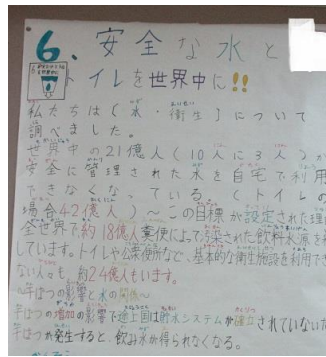 6、安全な水と
トイレを世界中に!!
私たちは〔水・衛生〕について
調べました。
世界中の21億人(10人に3人)が
安全に管理された水を自宅で利用
できなくなっている。(トイレの
場合42億人)~この目標が設定された理
全世界で約18億人糞便によって汚染された飲料水源を
しています。トイレや公衆便所など、基本的な衛生施設を利用でき
ない人々も、約24億人もいます。
~干ばつの影響と水の関係~
干ばつの増加の影響で途上国は貯水システムが確立されていない
干ばつが発生すると、飲み水が得られなくなる。